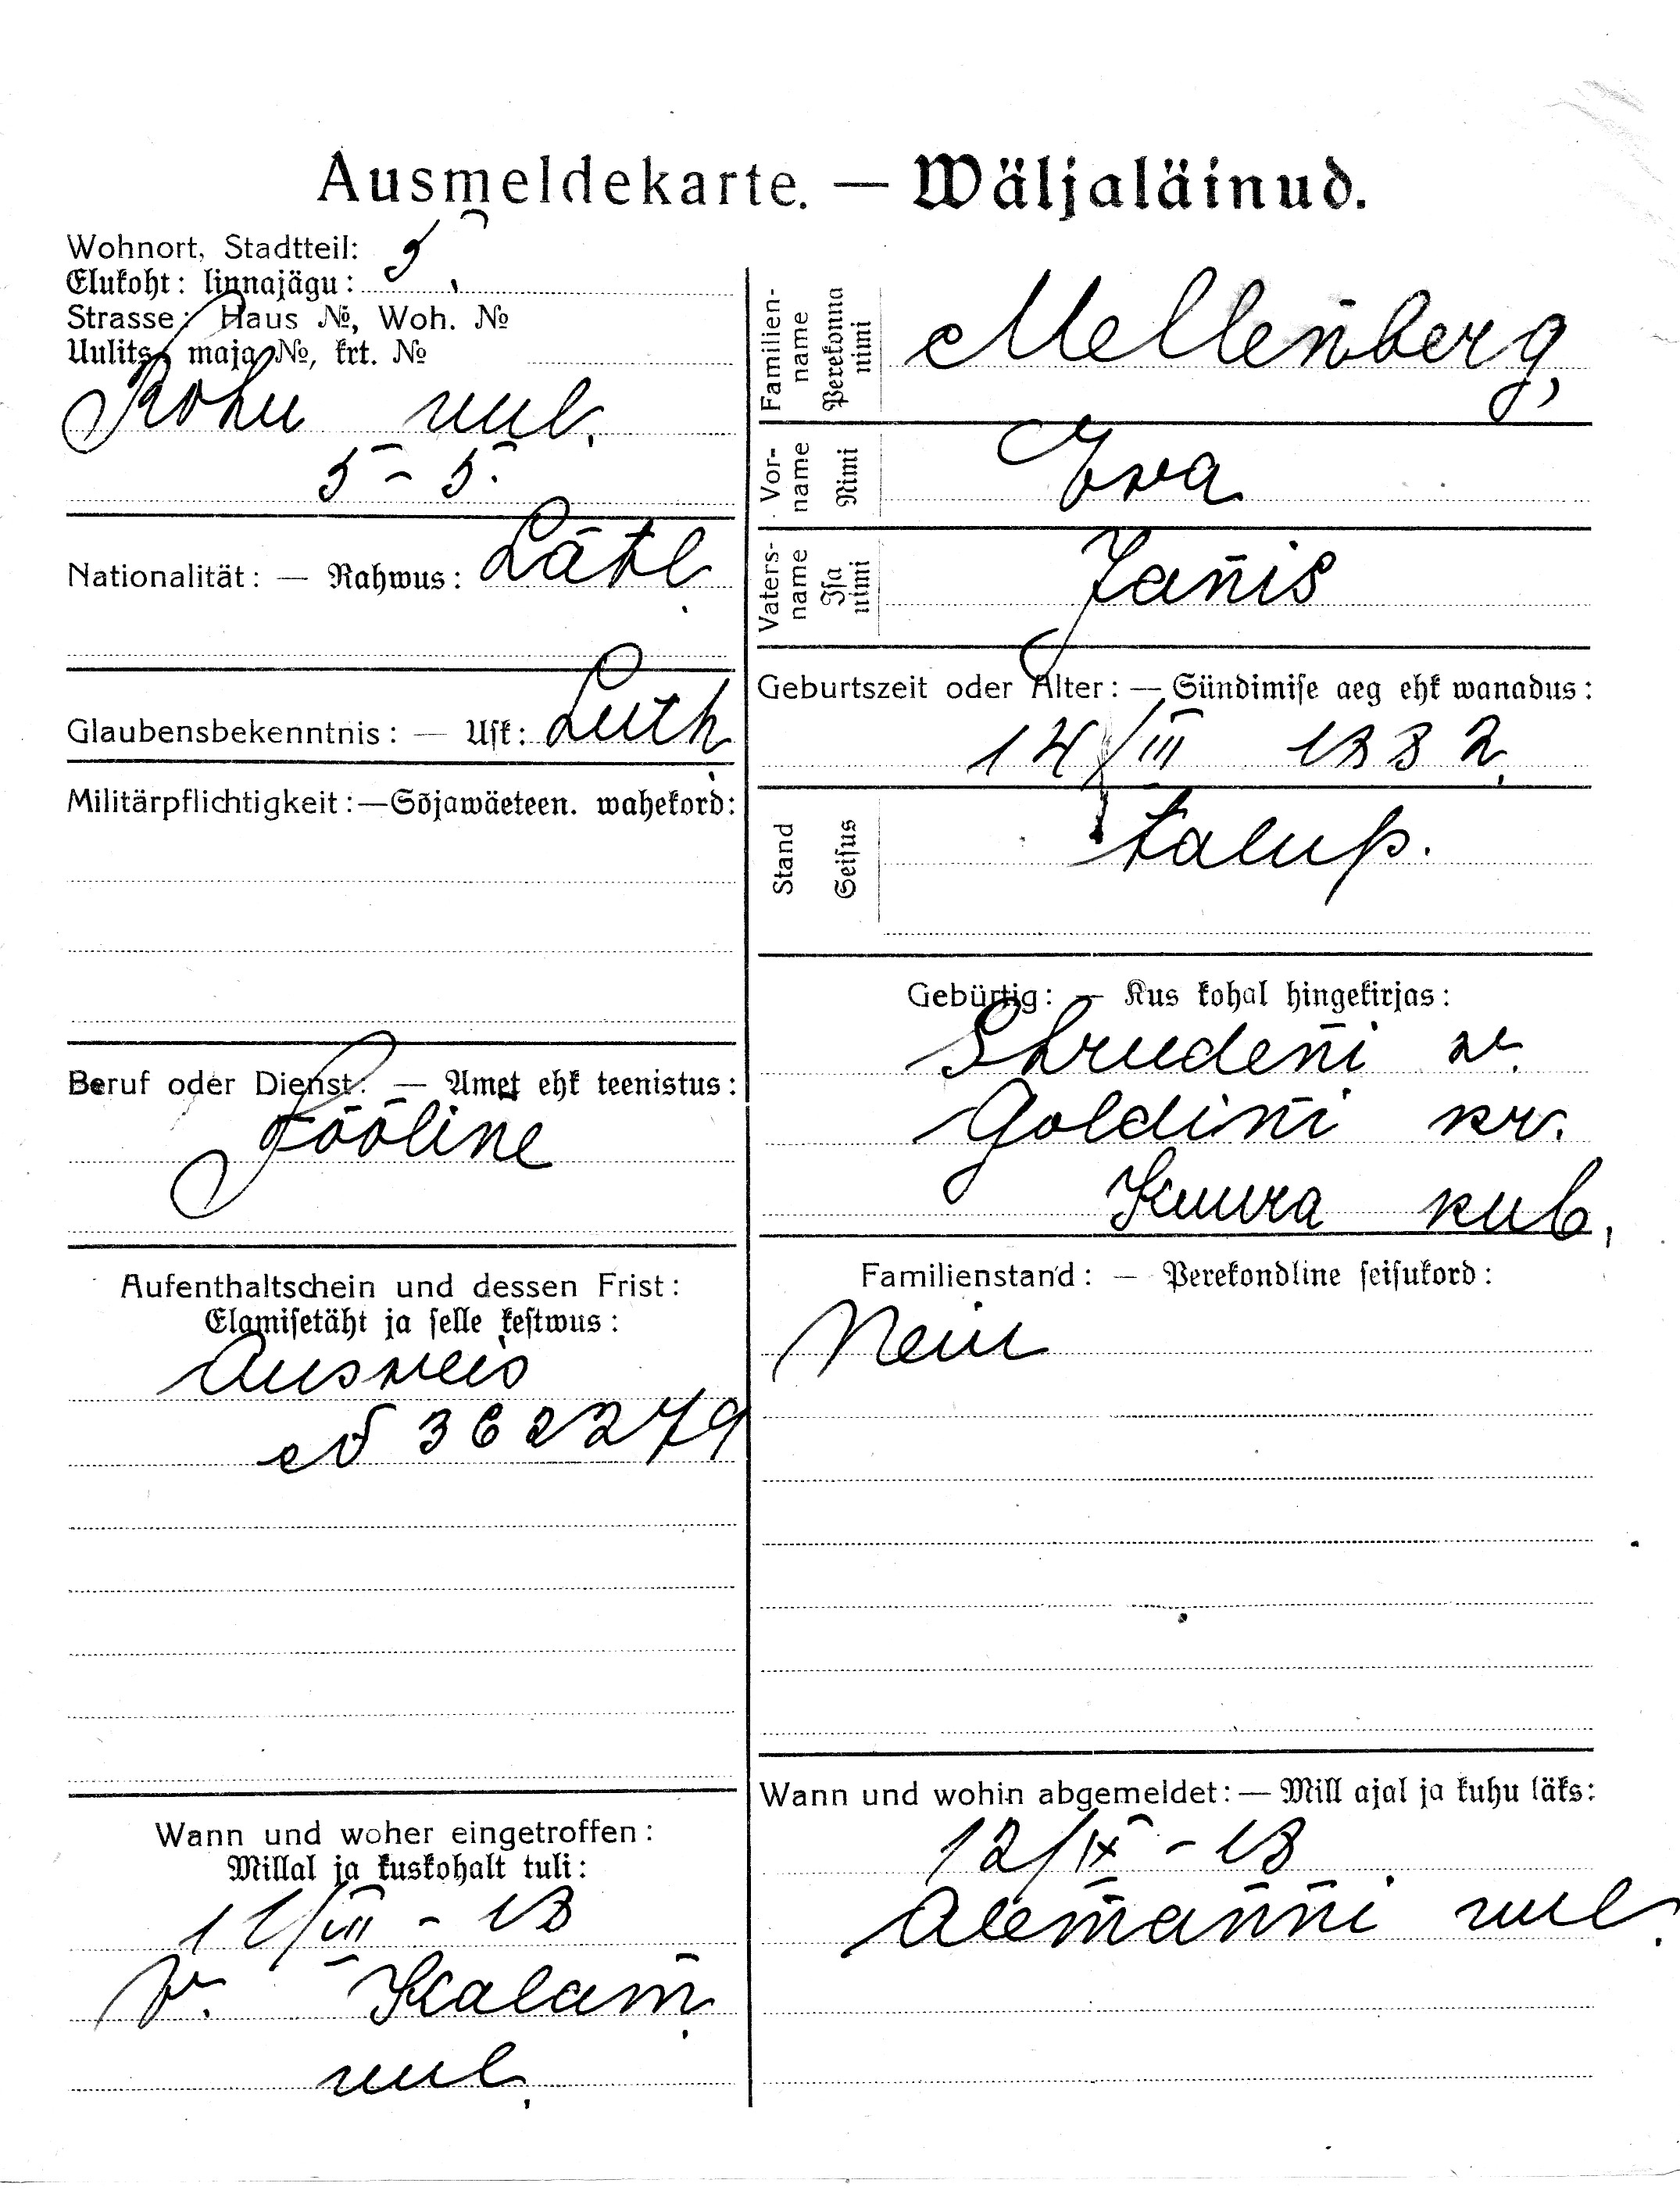 Ausmeldekarte. — Wäljaläinud.
Wohnort, Stadtteil: 5.
Elukoht: linnajägu:
Strasse: Haus №, Woh. №
Uulits, maja №, krt. №
Rohu uul.
5 - 5.
Nationalität: — Rahwus: Lätl.
Glaubensbekenntnis: — Usk: Luth.
Militärpflichtigkeit:—Sõjawäeteen. wahekord:
Beruf oder Dienst: — Amet ehk teenistus:
Tööline
Aufenthaltschein und dessen Frist:
Elamisetäht ja selle kestwus:
Ausweis
№ 362279
Wann und woher eingetroffen:
Millal ja kuskohalt tuli:
11/VII - 18
v. Kalam.
uul.
Familien-
name
Perekonna
nimi
Mellenberg,
Vor-
name
Nimi
Ewa
Vaters-
name
Isa
nimi
Janis
Geburtszeit oder Alter: — Sündimise aeg ehk wanadus:
14/III 1882.
Stand
Seisus
talup.
Gebürtig: — Kus kohal hingekirjas:
Skrudeni w.
Goldini kr.
Kuura kub.
Familienstand: — Perekondline seisukord:
Nein
Wann und wohin abgemeldet: — Mill ajal ja kuhu läks:
12/IX - 18
Alemanni uul.